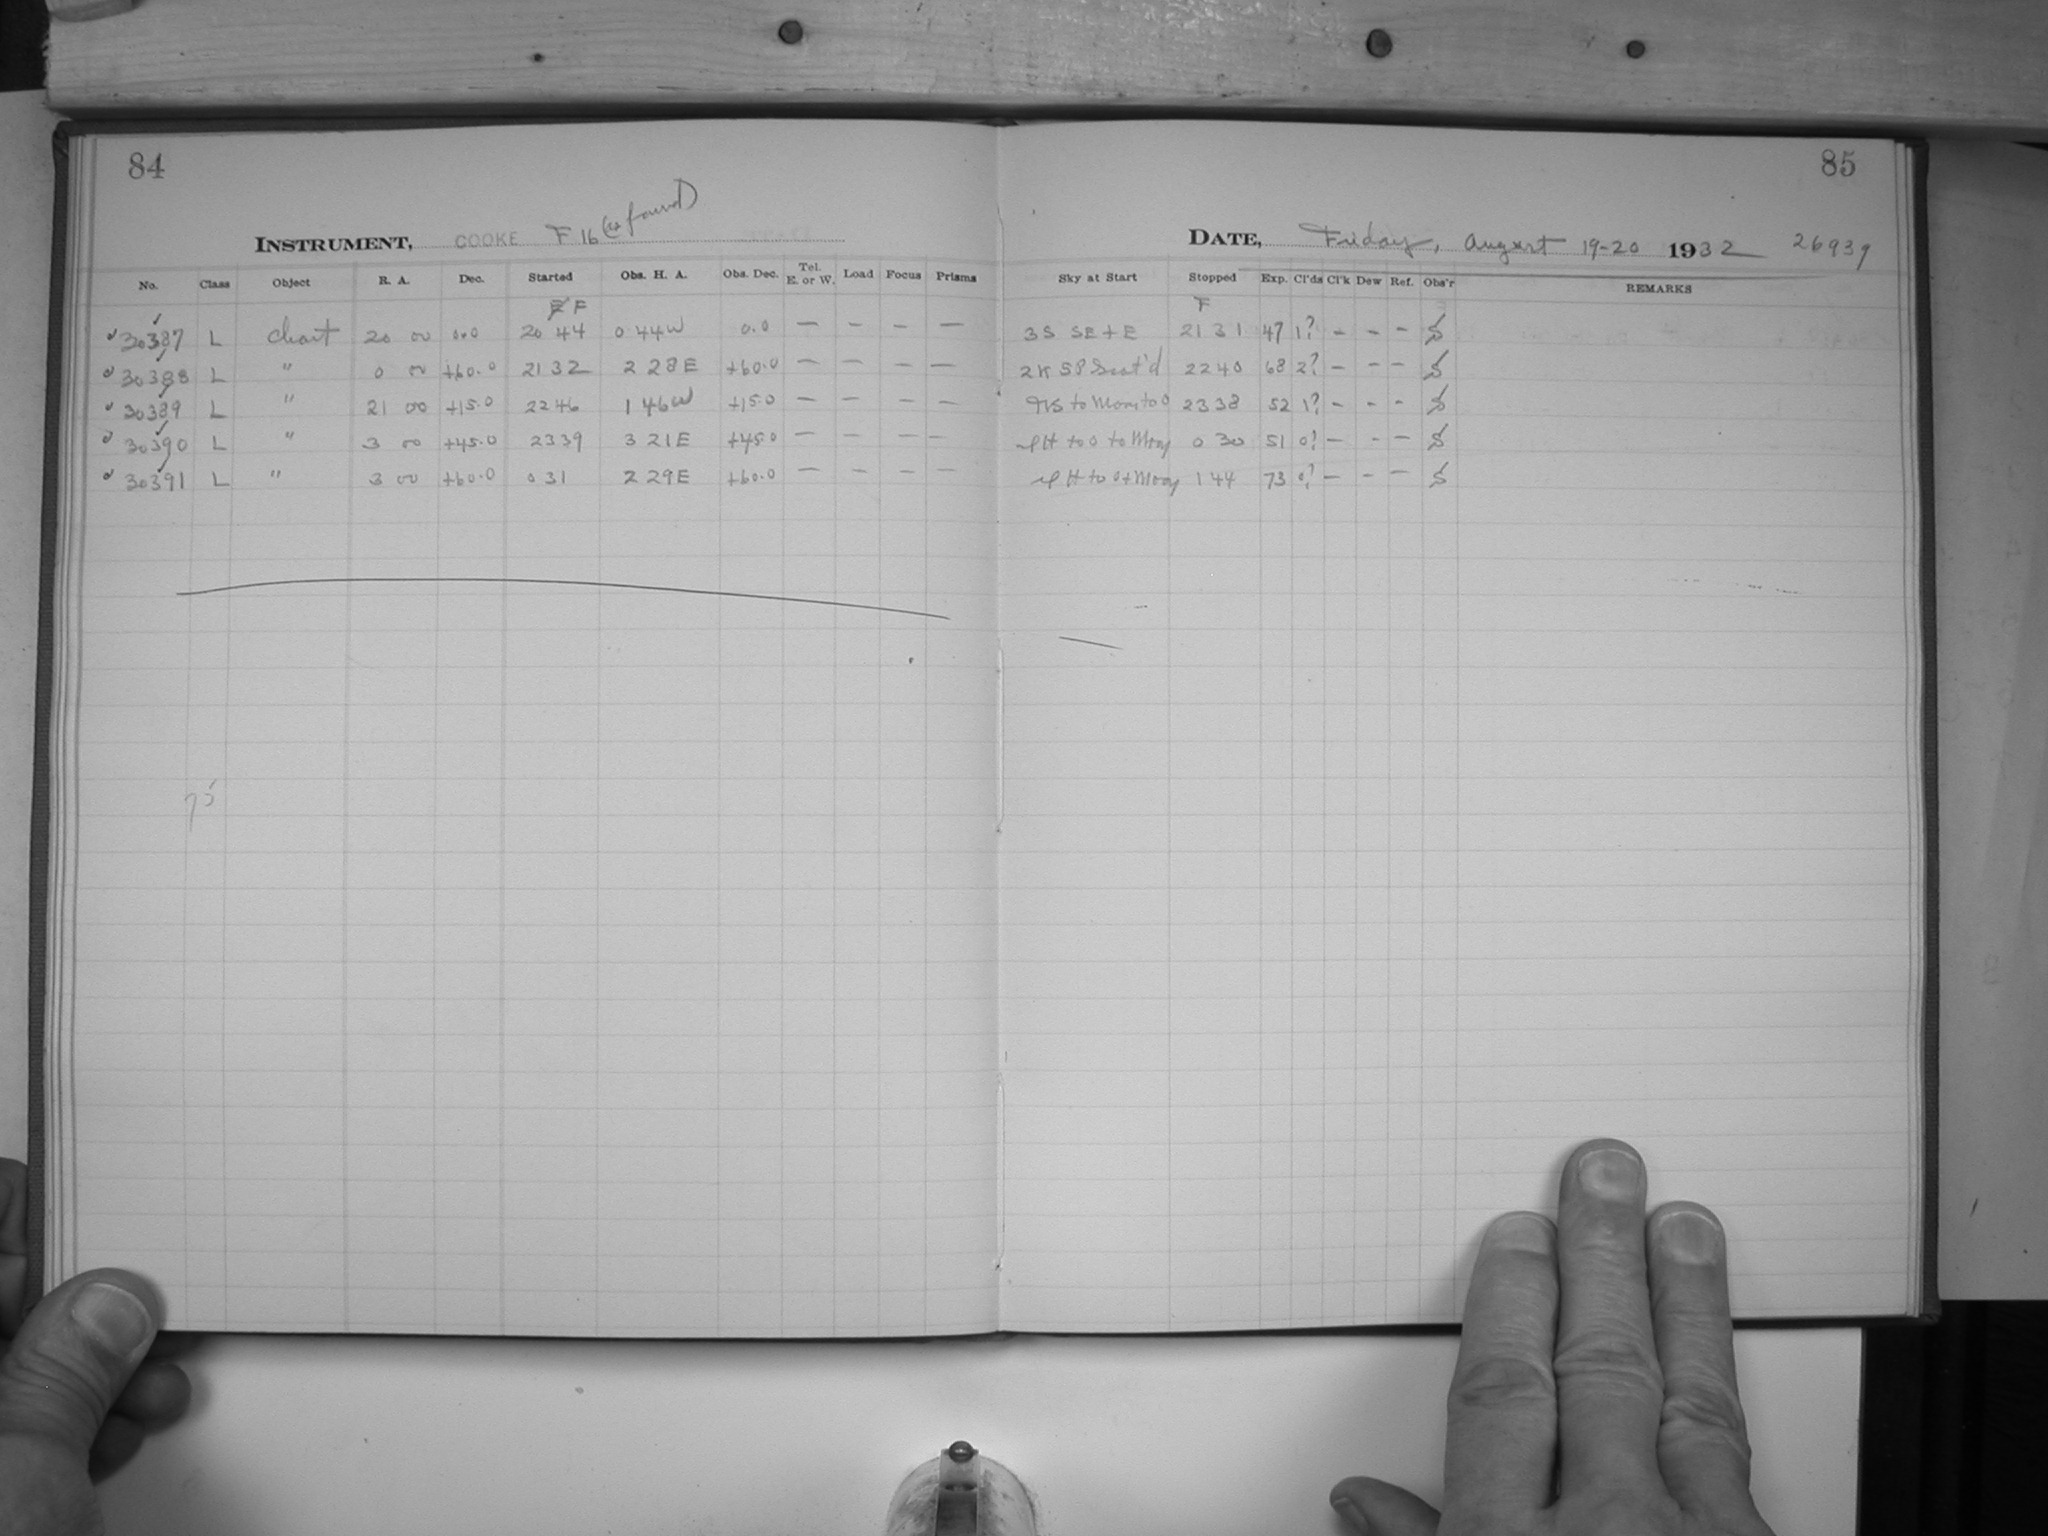 84
85
INSTRUMENT, COOKE F 16 (as found)
DATE, Friday, August 19-20 1932 26939
No. Class Object R. A. Dec. Started Obs. H. A. Obs. Dec. Tel. E. or W. Load Focus Prisms Sky at Start Stopped Exp. Cl'ds Cl'k Dew Ref. Obs'r REMARKS
F F
30387 L Chart 20 00 0.0 20 44 0 44W 0.0 — — — — 3S SE+E 21 31 47 1? — — — S
30388 L " 0 00 +60.0 21 32 2 28E +60.0 — — — — 2K SP Scat'd 22 40 68 2? — — — S
30389 L " 21 00 +15.0 22 46 1 46W +15.0 — — — — to Moon to 0 23 38 52 1? — — — S
30390 L " 3 00 +45.0 23 39 3 21E +45.0 — — — — H to 0 to Moon 0 30 51 0? — — — S
30391 L " 3 00 +60.0 0 31 2 29E +60.0 — — — — H to 0+Moon 1 44 73 0? — — — S
75